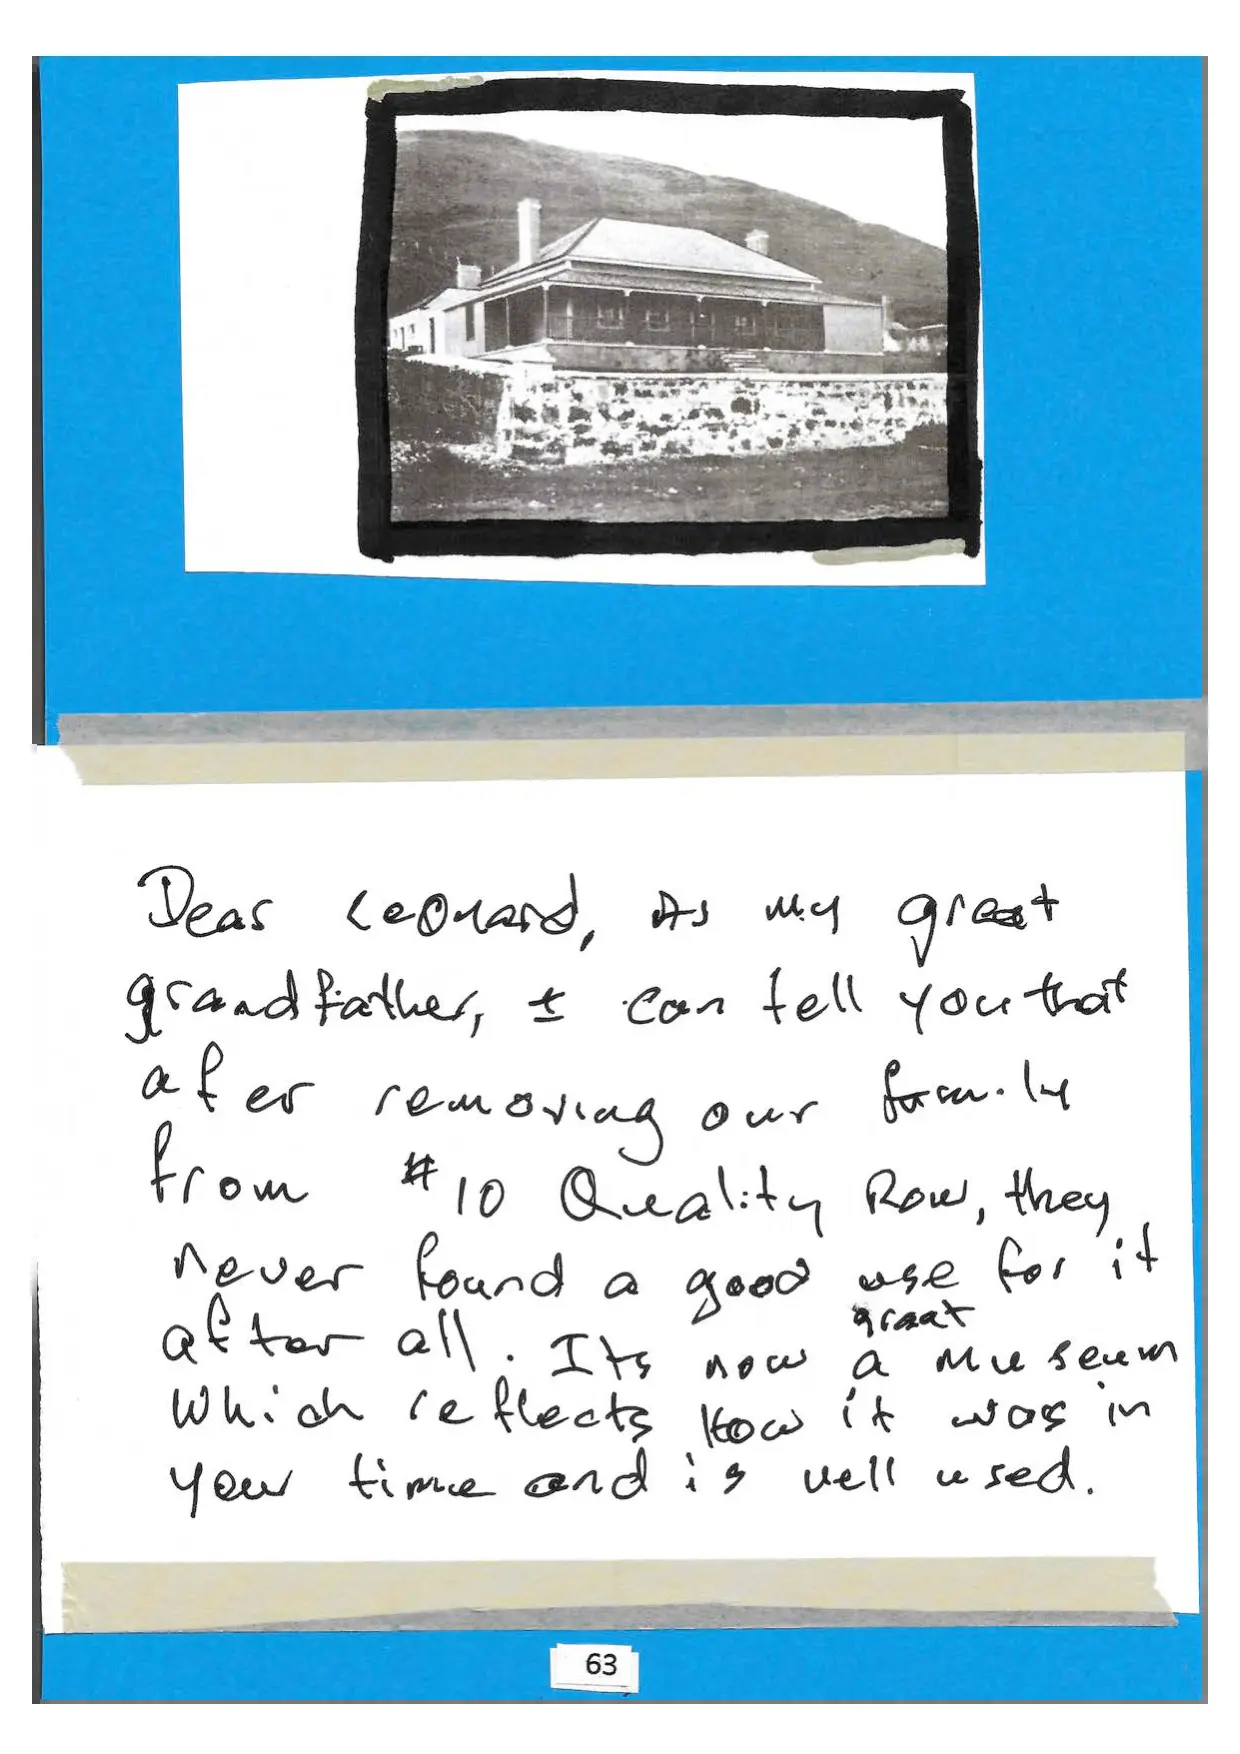 Dear Leonard, As my great
grandfather, I can tell you that
after removing our family
from #10 Quality Row, they
never found a good use for it
after all. Its now a great museum
which reflects How it was in
your time and is well used.
63